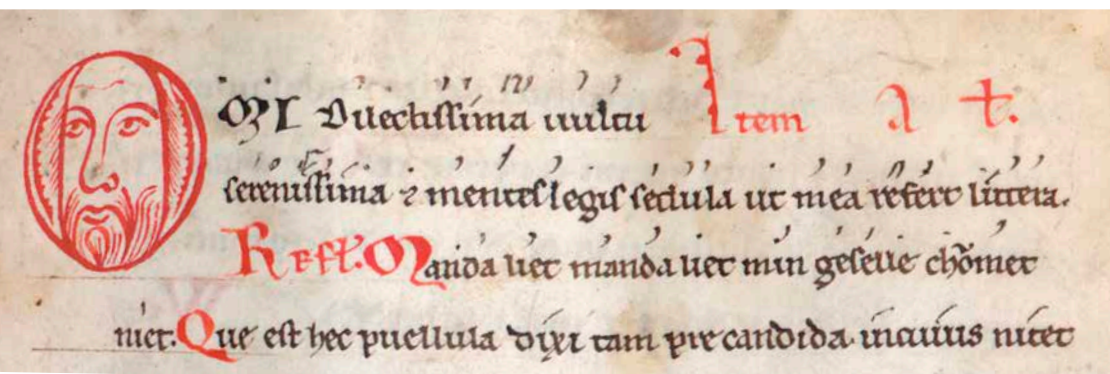 OMI Dilectissima uultu Item a t.
serenissima ⁊ mentes legis sedula ut mea refert littera.
Refl. Manda liet manda liet min geselle chōmet
niet. Que est hec puellula dixi tam precandida. incuius nitet